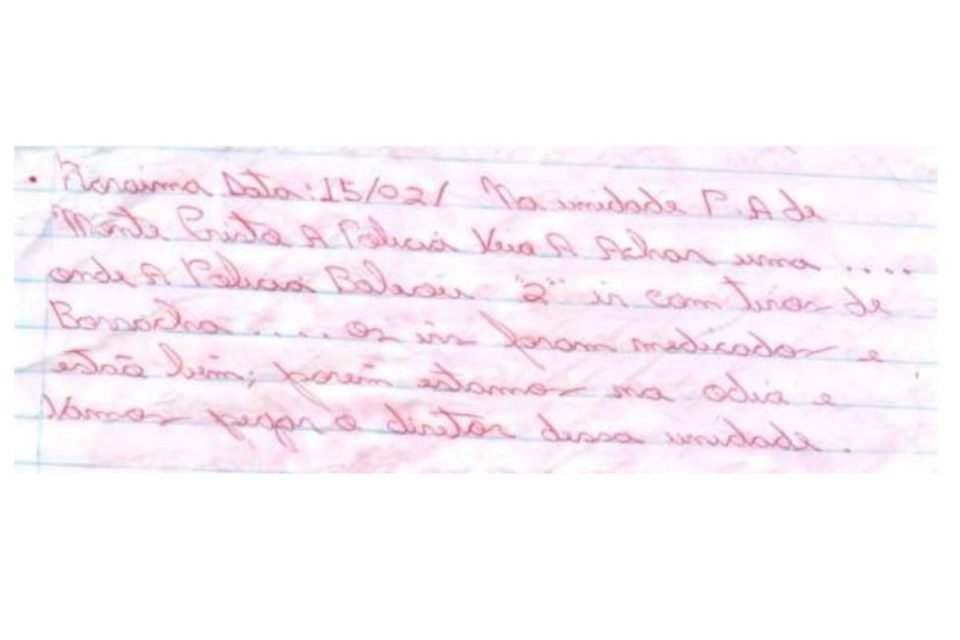 • Roraima Data: 15/02/ Na unidade P.A de
Monte Cristo A Policia Veio A Achar uma ....
onde A Policia Baleou "2" ir com tiros de
Borracha .... os irs foram medicados e
estão bem; porém estamos no odio e
Vamos pegar o diretor dessa unidade.